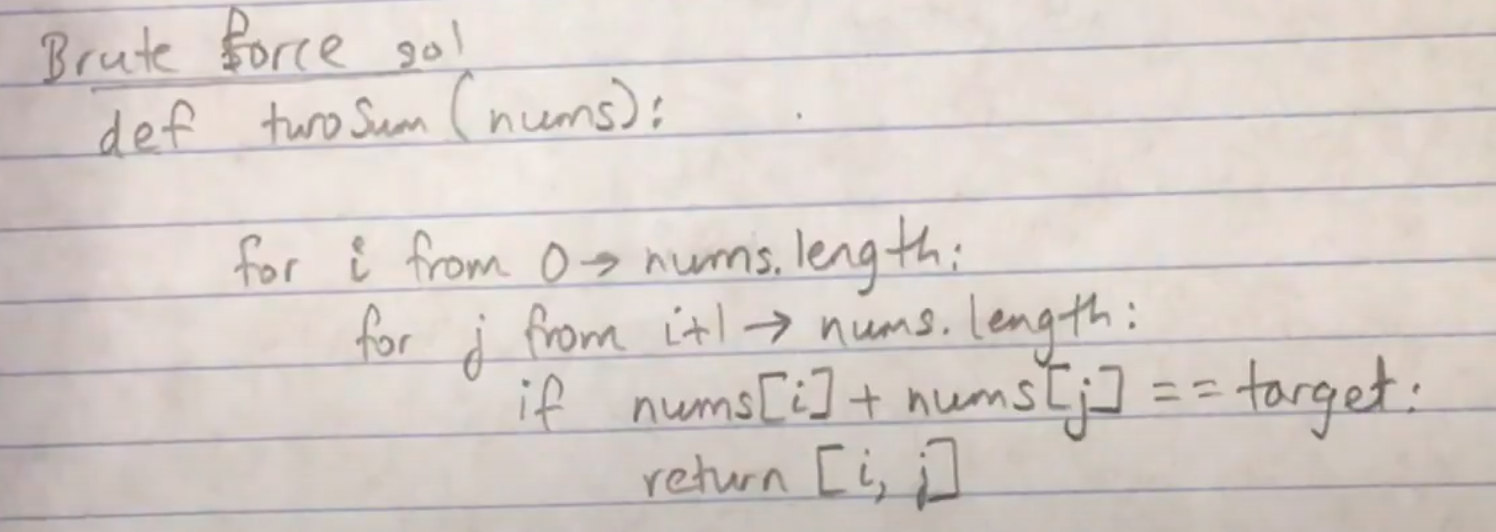 Brute force sol
def twoSum (nums):
for i from 0 → nums.length:
for j from i+1 → nums.length:
if nums[i] + nums[j] == target:
return [i, j]